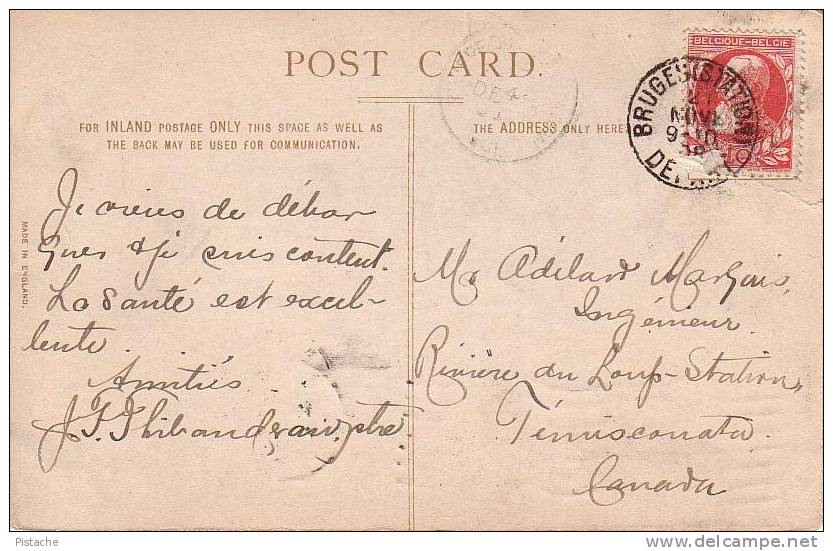 BELGIQUE-BELGIE
BRUGES (STATION)
NOVE
POST CARD.
FOR INLAND POSTAGE ONLY THIS SPACE AS WELL AS
THE BACK MAY BE USED FOR COMMUNICATION.
THE ADDRESS ONLY HERE
MADE IN ENGLAND.
Je viens de débar
quer & je suis content.
La Santé est excel-
lente.
Amitiés
ptre
Mr Adélard Marquis,
Ingénieur
Rivière du Loup-Station,
Témiscouata
Canada
Pistache
delcampe.net